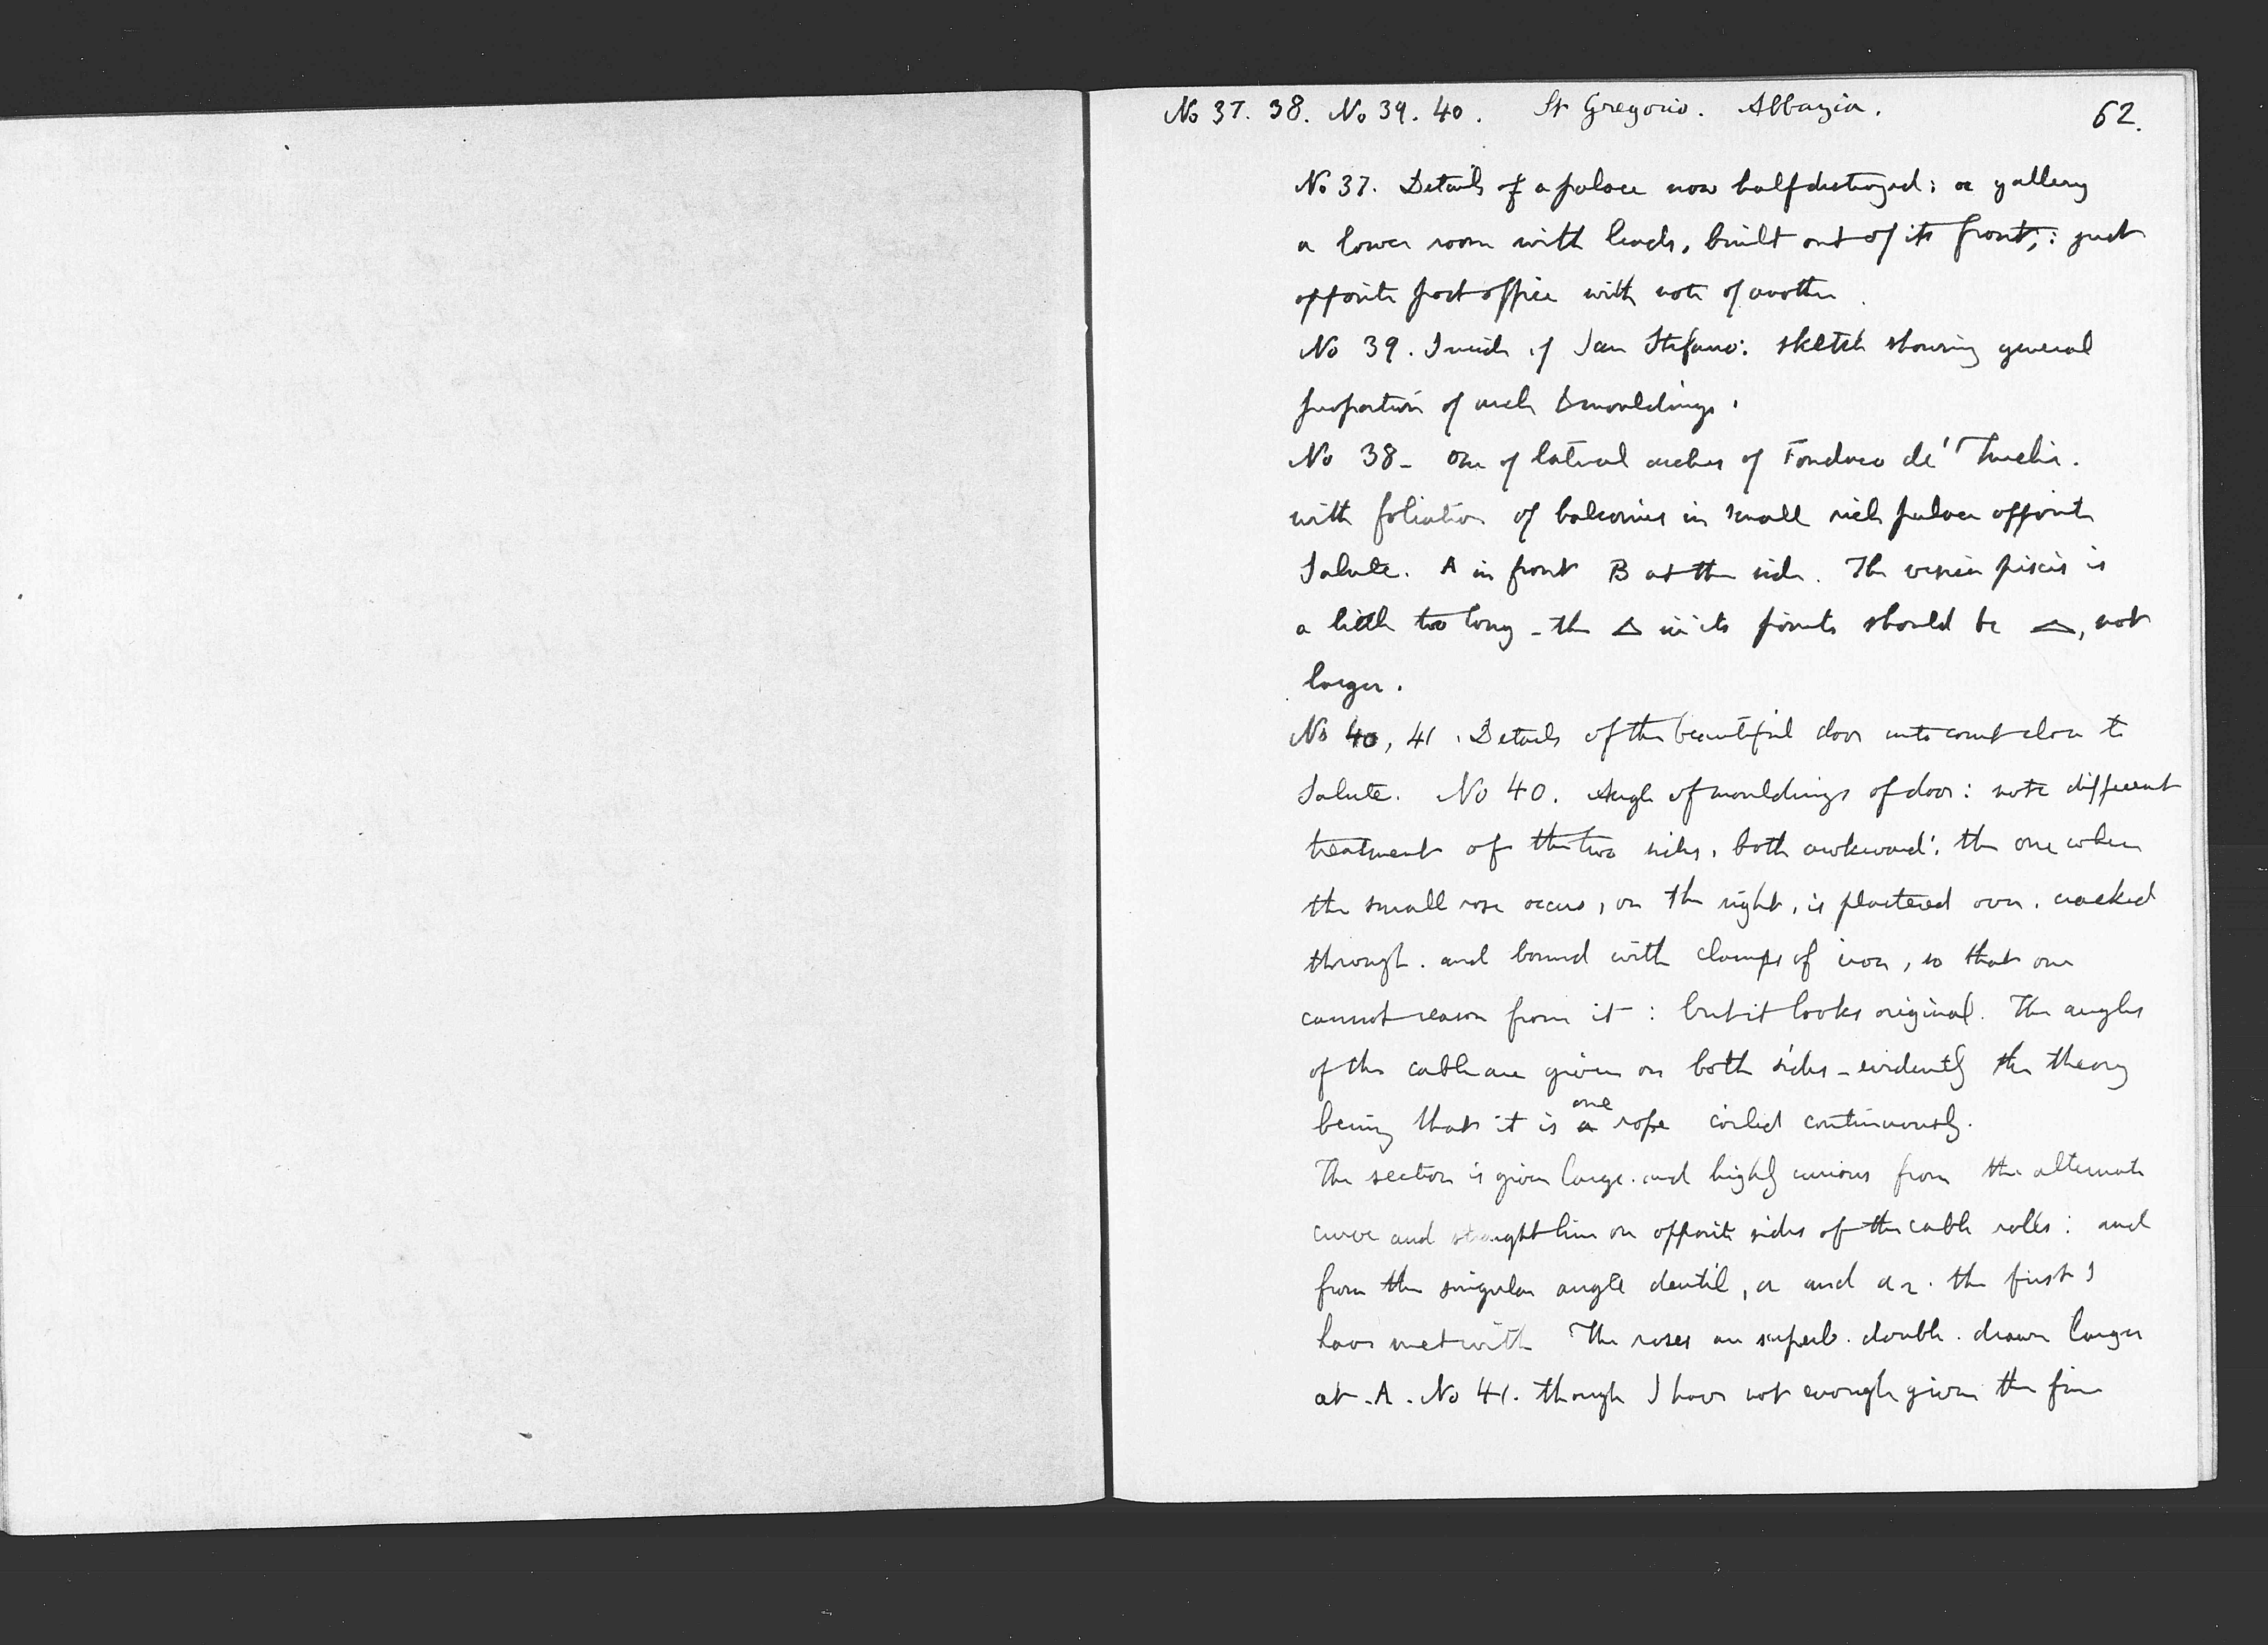 No 37. 38. No 39. 40. St Gregorio. Abbazia. 62.
No 37. Details of a palace now half destroyed: a gallery
a lower room with leads, built out of its front,: just
opposite post office with note of another.
No 39. Inside of San Stefano: sketch showing general
proportion of arch & mouldings.
No 38 - One of lateral arches of Fondaco de' Turchi.
with foliation of balconies in small rich palace opposite
Salute. A in front B at the side. The vesica piscis is
a little too long - the △ in its points should be △, not
larger.
No 40, 41. Details of the beautiful door into court close to
Salute. No 40. Angle of mouldings of door: note different
treatment of the two sides, both awkward: the one where
the small rose occurs, on the right, is plastered over. cracked
through. and bound with clamps of iron, so that one
cannot reason from it: but it looks original. The angles
of the cable are given on both sides - evidently the theory
being that it is a one rope coiled continuously.
The section is given large. and highly curious from the alternate
curve and straight line on opposite sides of the cable rolls: and
from the singular angle dentil, a and a 2. the first I
have met with The roses are superb. double. drawn larger
at. A. No 41. though I have not enough given the fine